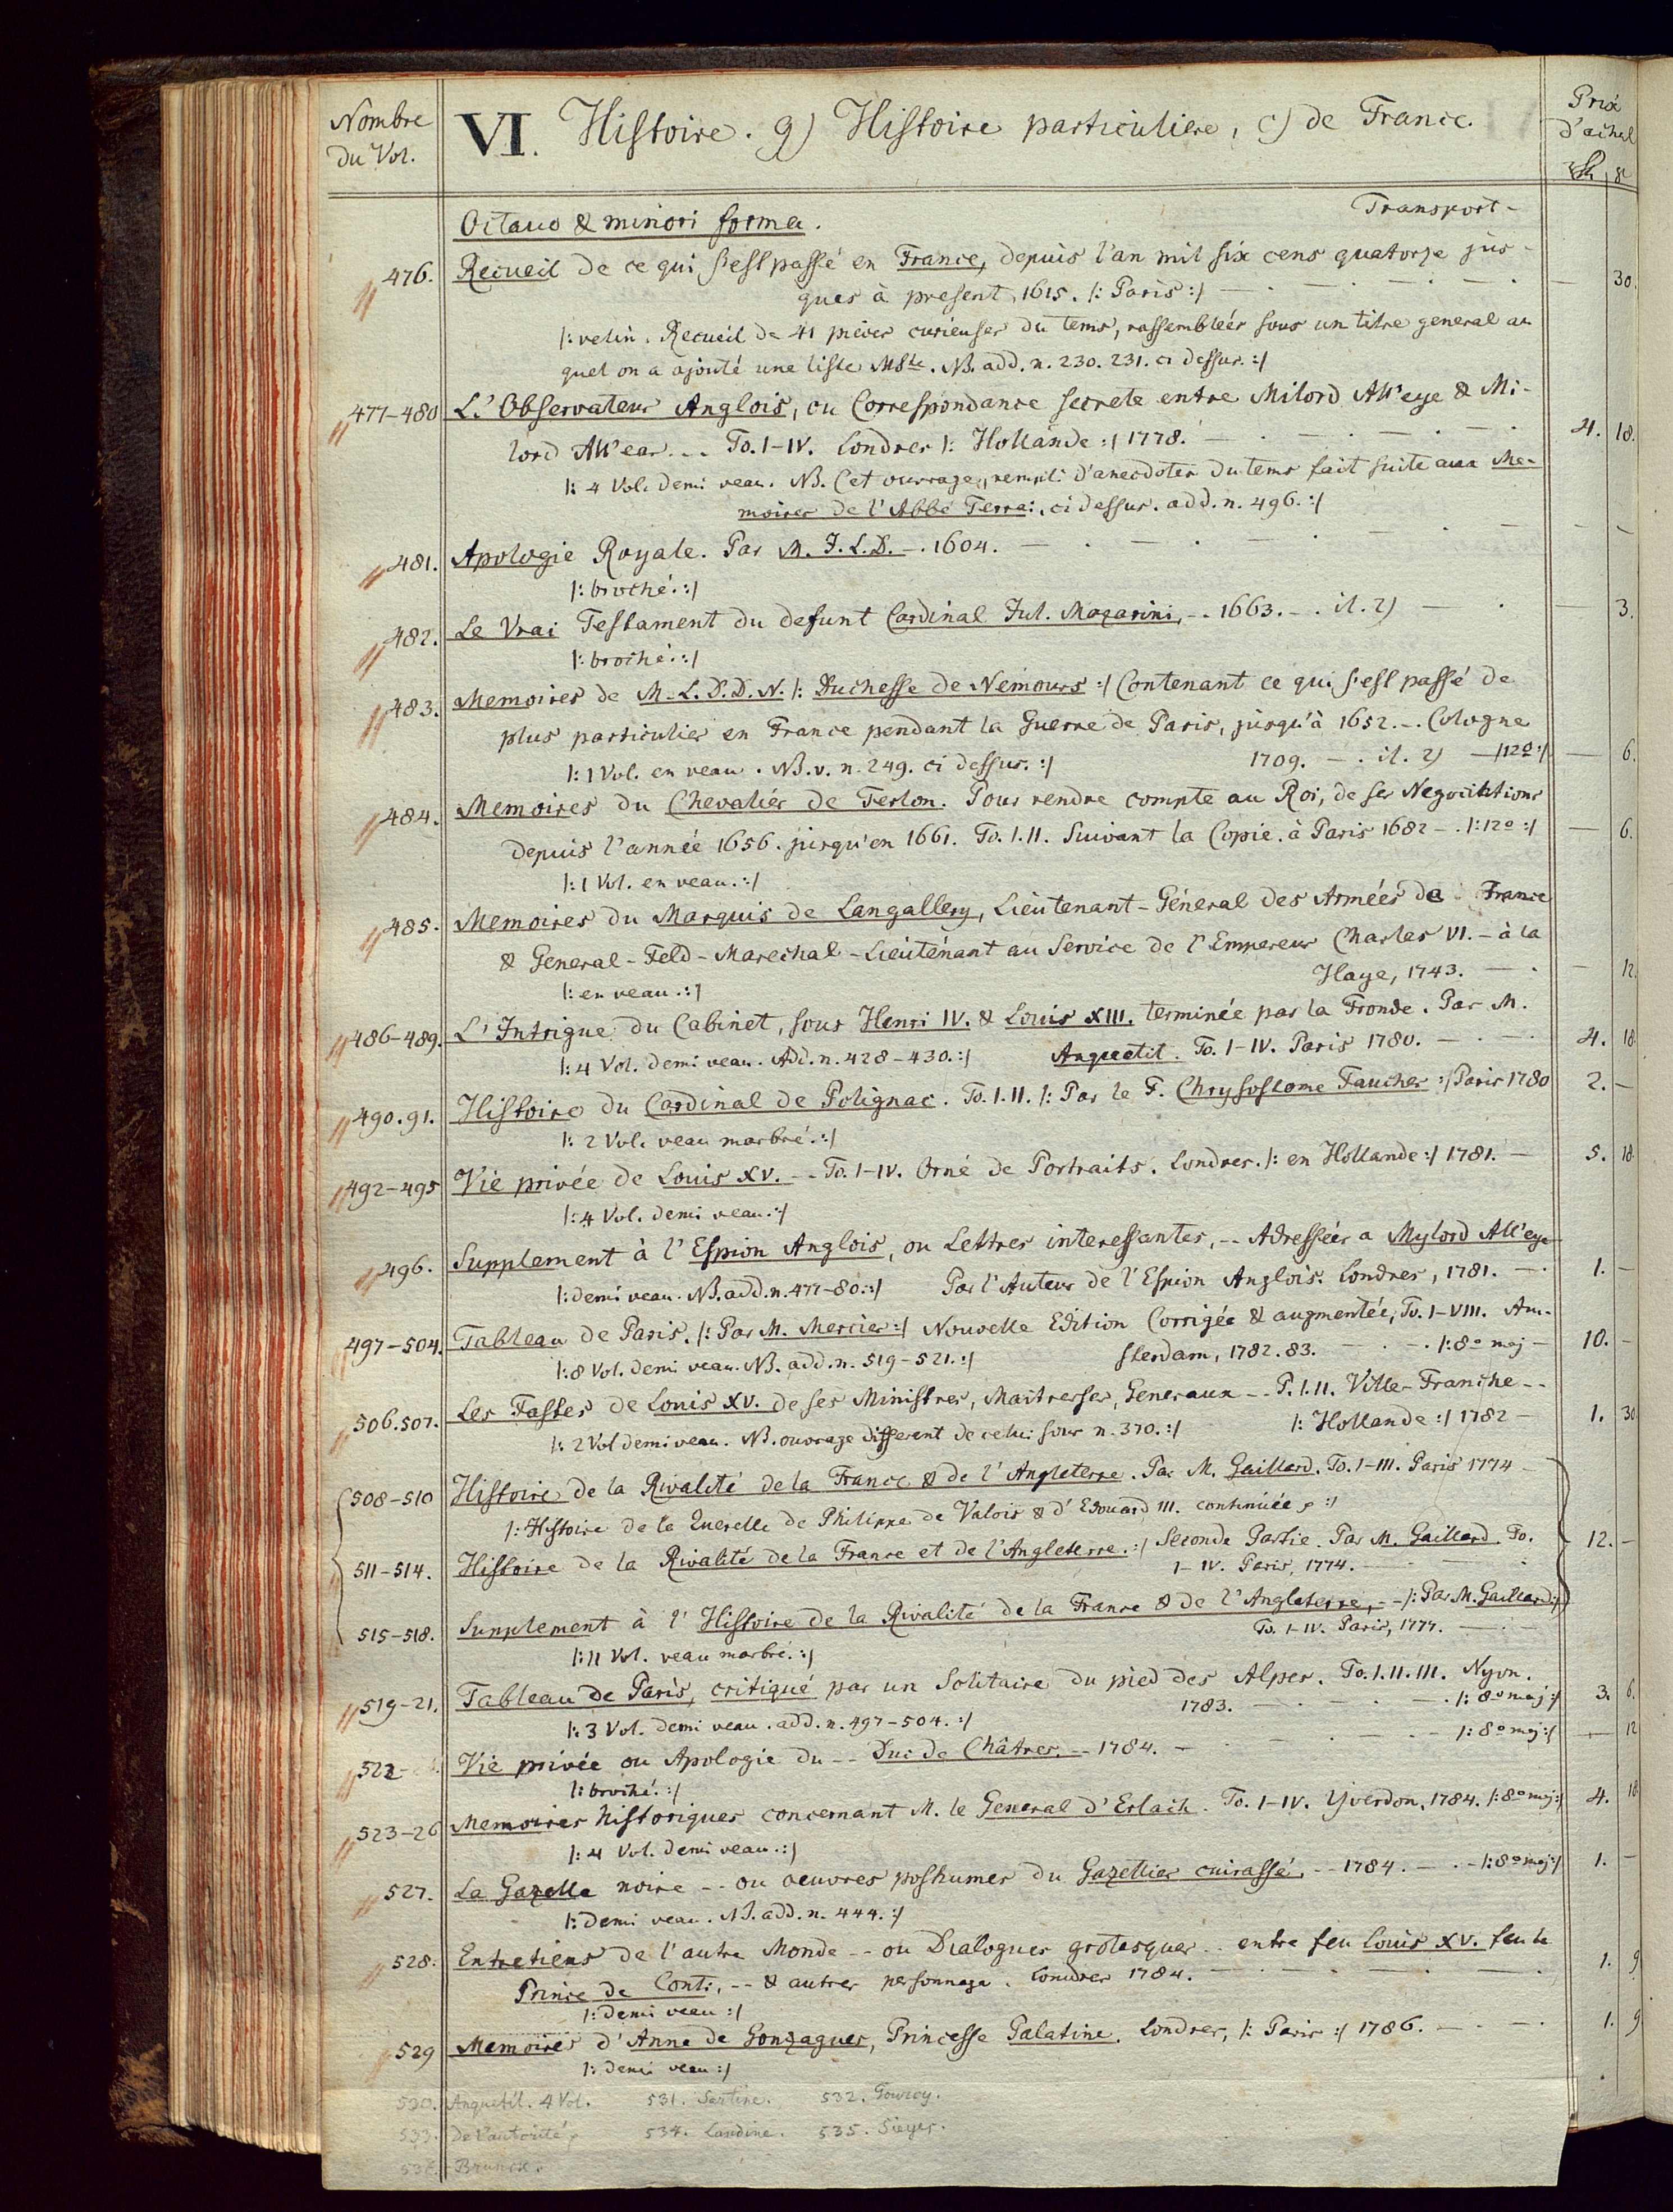 Nombre
du Vol.
VI. Histoire. g) Histoire particuliere, c) de France.
Prix
d'achat
Octavo & minori forma.
Transport -
476. Recueil de ce qui s'est passé en France, depuis l'an mil six cens quatorze jus-
ques à present, 1615. |: Paris :| 30.
|: velin. Recueil de 41 pieces curieuses du tems, rassembleés sous un titre general au
quel on a ajouté une liste MSte. NB. add. n. 230. 231. ci dessus. :|
477-480 L'Observateur Anglois, ou Correspondance secrete entre Milord All'eye & Mi-
lord All'ear. -- To. I-IV. Londres |: Hollande :| 1778. 4. 18.
|: 4 Vol. demi veau. NB. Cet ouvrage, rempli d'anecdotes du tems fait suite aux Me-
moires de l'Abbé Terrai, ci dessus. add. n. 496. :|
481. Apologie Royale. Par M. J. L. D. -. 1604. -
|: broché. :|
482. Le Vrai Testament du defunt Cardinal Jul. Mazarini, -. 1663. -. il. 2) 3.
|: broché. :|
483. Memoires de M. L. D. D. N. |: Duchesse de Nemours :| Contenant ce qui s'est passé de
plus particulier en France pendant la Guerre de Paris, jusqu'à 1652. -. Cologne
|: 1 Vol. en veau. NB. v. n. 249. ci dessus. :| 1709. -. il. 2) - |12o :| 6.
484. Memoires du Chevalier de Terlon. Pour rendre compte au Roi, de ses Negociations
depuis l'année 1656. jusqu'en 1661. To. I. II. Suivant la Copie. à Paris 1682 -. |: 12o :| 6.
|: 1 Vol. en veau. :|
485. Memoires du Marquis de Langallery, Lieutenant-Géneral des Armées de France
& General-Feld-Marechal-Lieutenant au Service de l'Empereur Charles VI. - à la
|: en veau. :| Haye, 1743. 12.
486-489. L'Intrigue du Cabinet, sous Henri IV. & Louis XIII. terminée par la Fronde. Par M.
|: 4 Vol. demi veau. Add. n. 428-430. :| Anquetil. To. I-IV. Paris 1780. 4. 18
490.91. Histoire du Cardinal de Polignac. To. I. II. |: Par le F. Chrysostome Faucher :| Paris 1780 2. -
|: 2 Vol. veau marbré. :|
492-495 Vie privée de Louis XV. -- To. I-IV. Orné de Portraits. Londres. |: en Hollande :| 1781. - 5. 18.
|: 4 Vol. demi veau. :|
496. Supplement à l'Espion Anglois, ou Lettres interessantes, -- Adressées a Mylord All'eye
|: demi veau. NB. add. n. 477-80. :| Par l'Auteur de l'Espion Anglois. Londres, 1781. - 1. -
497-504. Tableau de Paris. |: Par M. Mercier :| Nouvelle Edition Corrigée & augmentée, To. I-VIII. Am-
|: 8 Vol. demi veau. NB. add. n. 519-521. :| sterdam, 1782. 83. |: 8o maj - 10. -
506.507. Les Fastes de Louis XV. de ses Ministres, Maitresses, Generaux -- P. I. II. Ville-Franche --
|: 2 Vol demi veau. NB. ouvrage different de celui sous n. 370. :| |: Hollande :| 1782 - 1. 30.
508-510 Histoire de la Rivalité de la France & de l'Angleterre. Par M. Gaillard. To. I-III. Paris 1774 -
|: Histoire de la Querelle de Philippe de Valois & d'Edouard III. continüée :|
511-514. Histoire de la Rivalité de la France et de l'Angleterre. :| Seconde Partie. Par M. Gaillard. To. 12. -
I-IV. Paris, 1774.
515-518. Supplement à l'Histoire de la Rivalité de la France & de l'Angleterre, -- |: Par M. Gaillard :|
To. I-IV. Paris, 1777.
|: 11 Vol. veau marbré. :|
519-21. Tableau de Paris, critiqué par un Solitaire du pied des Alpes. To. I. II. III. Nyon.
|: 3 Vol. demi veau. add. n. 497-504. :| 1783. |: 8o maj :| 3. 6.
522 Vie privée ou Apologie du -- Duc de Châtres. -- 1784. |: 8o maj :| 12
|: broché. :|
523-26 Memoires historiques concernant M. le General d'Erlach. To. I-IV. Yverdon, 1784. |: 8o maj :| 4. 18
|: 4 Vol. demi veau. :|
527. La Gazette noire -- ou oeuvres posthumes du Gazettier cuirassé, -- 1784. - |: 8o maj :| 1. -
|: demi veau. NB. add. n. 444. :|
528. Entretiens de l'autre Monde -- ou Dialogues grotesques -- entre feu Louis XV. feu le
Prince de Conti, -- & autres personnage. Londres 1784. 1. 9.
|: demi veau :|
529 Memoires d'Anne de Gonzagues, Princesse Palatine. Londres, |: Paris :| 1786. 1. 9
|: demi veau :|
530. Anquetil. 4 Vol. 531. Sartine. 532. Gourcy.
533. De l'autorité 534. Landine. 535. Sieyes.
536. Brunck.